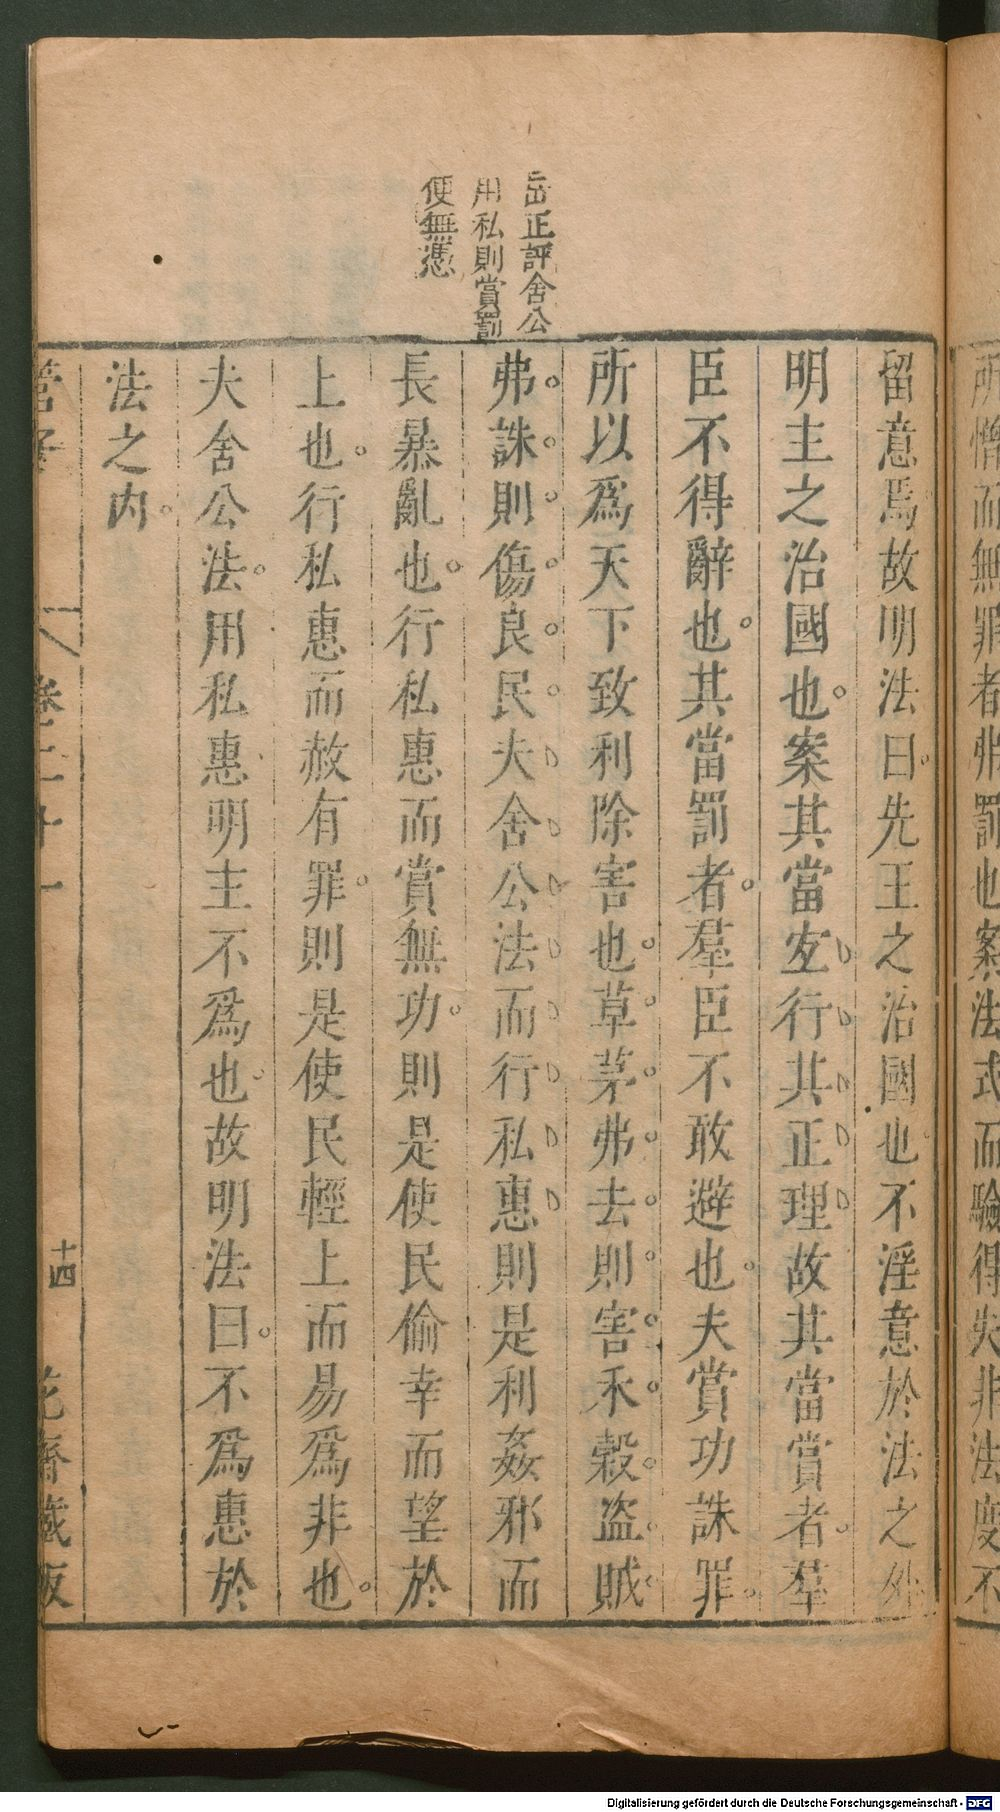 所憎而無罪者弗罰也案法式而驗得失非法度不
留意焉故明法曰先王之治國也不淫意於法之外
明主之治國也案其當宜行其正理故其當賞者羣
臣不得辭也其當罰者羣臣不敢避也夫賞功誅罪
所以爲天下致利除害也草茅弗去則害禾穀盜賊
弗誅則傷良民夫舍公法而行私惠則是利姦邪而
長暴亂也行私惠而賞無功則是使民偷幸而望於
上也行私惠而赦有罪則是使民輕上而易爲非也
夫舍公法用私惠明主不爲也故明法曰不爲惠於
法之內
正評舍公
用私則賞罰
便無憑
管子
卷二十一
十四
花齋藏版
Digitalisierung gefördert durch die Deutsche Forschungsgemeinschaft - DFG